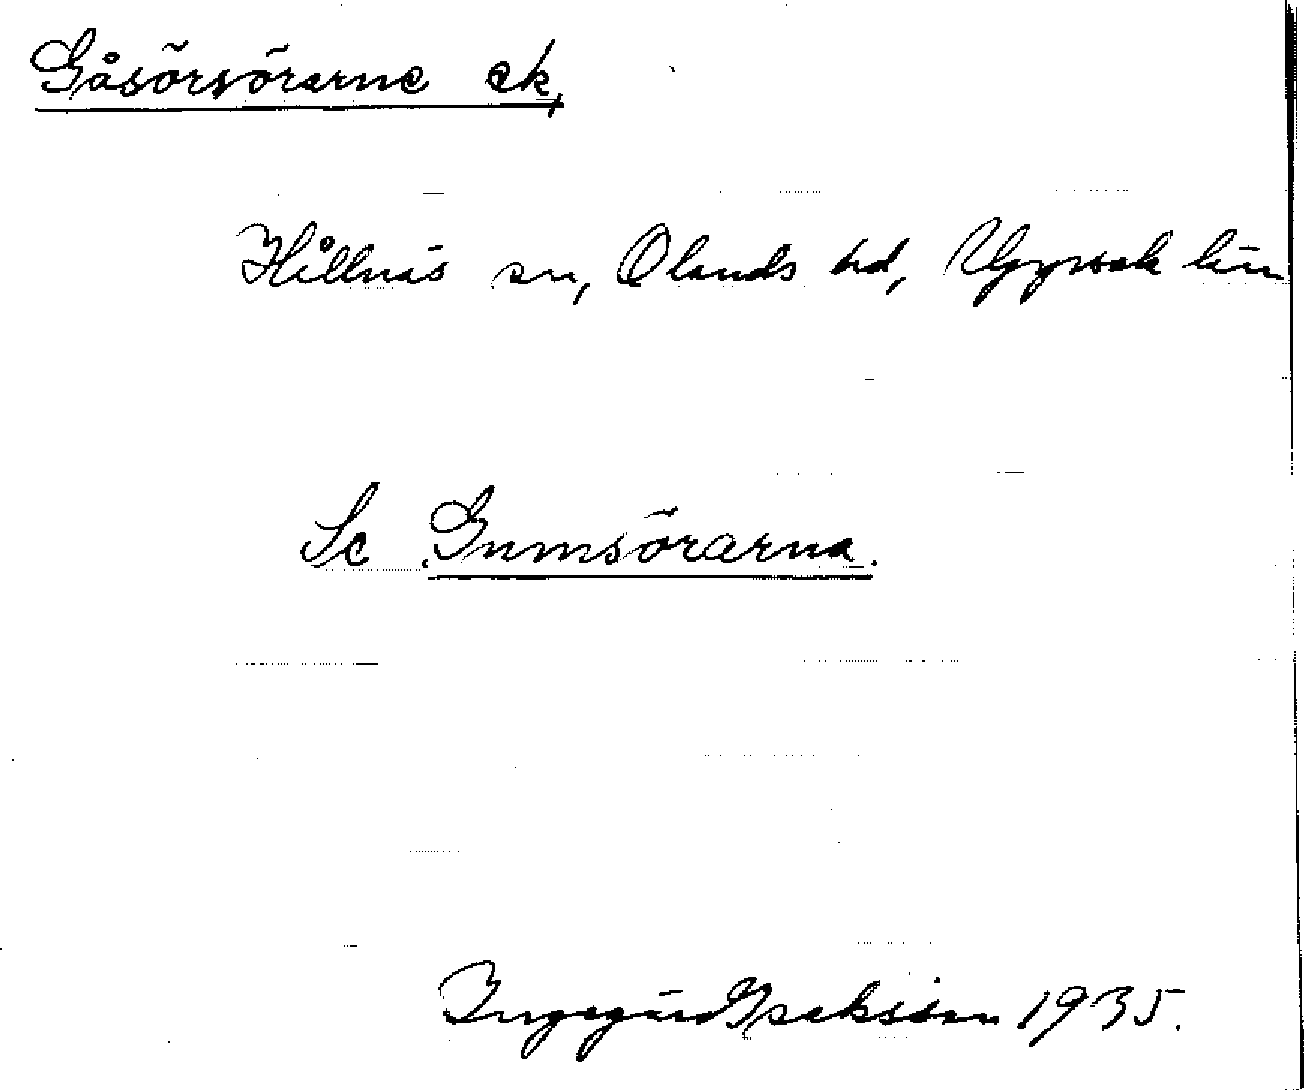 Gåsörsörarne sk,
Hållnäs sn, Olands hd, Uppsala län
Se Gumsörarna.
Ingegärd Isaksson 1935.